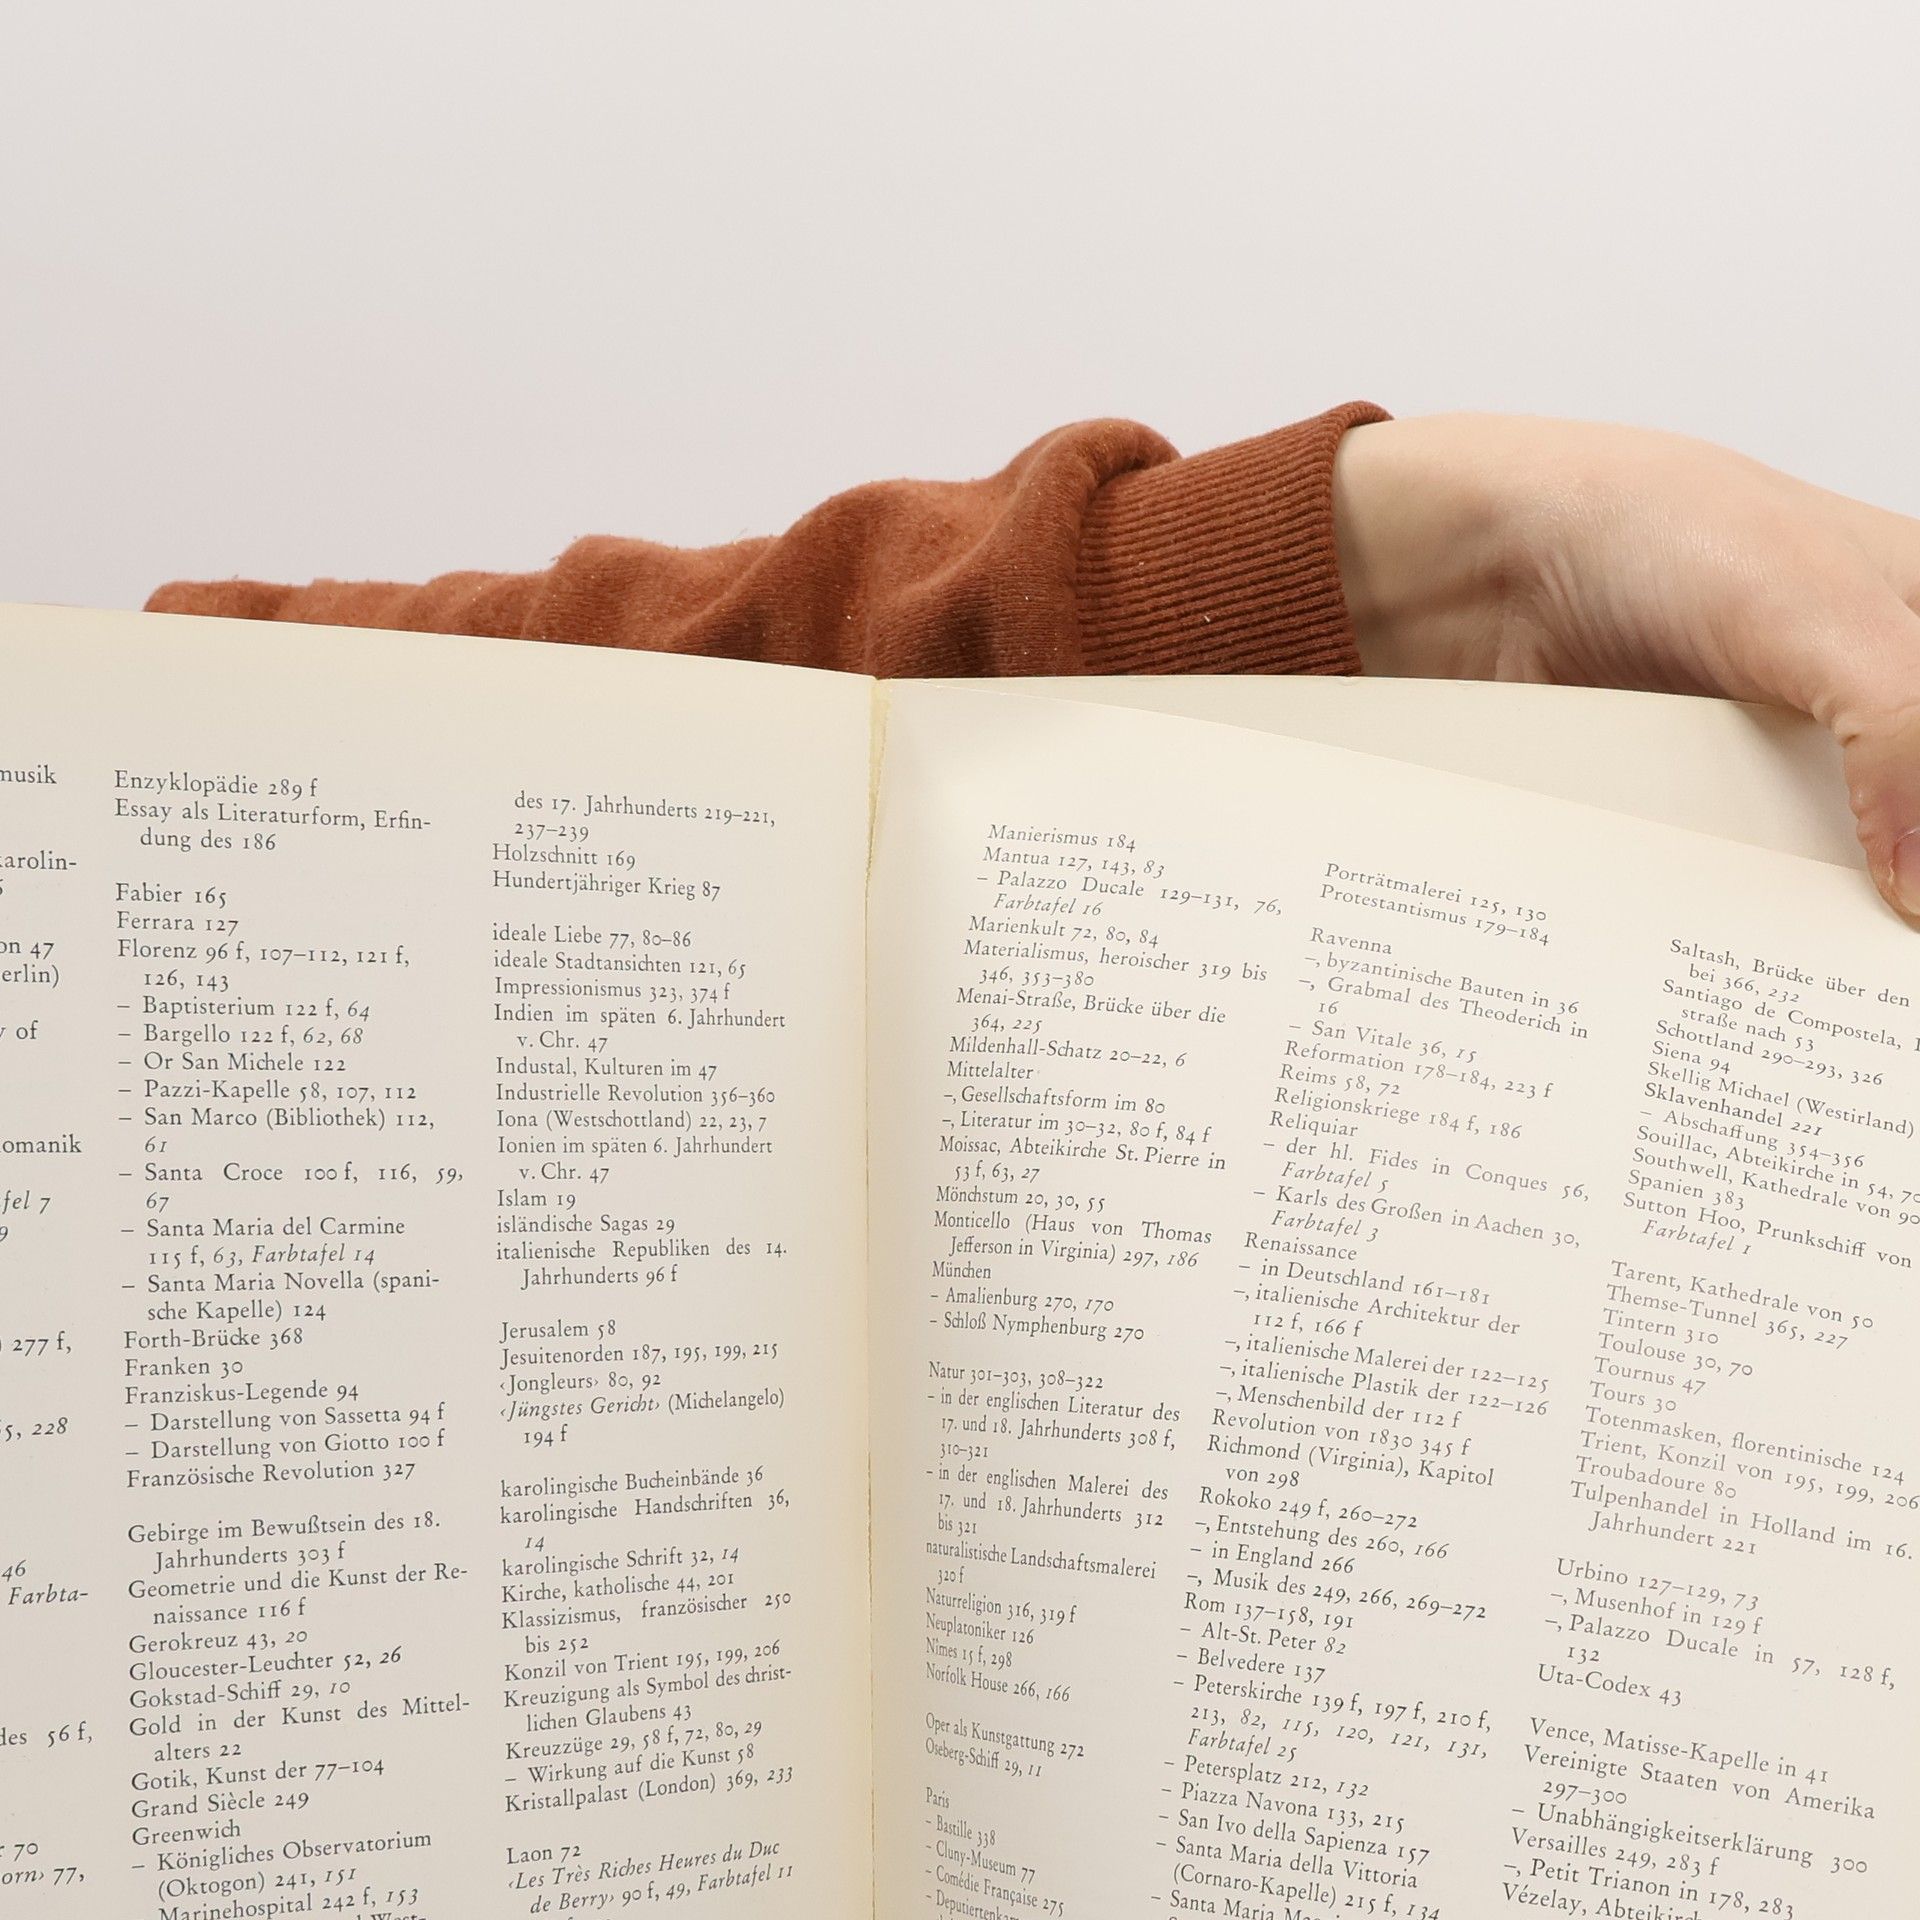 musik
karolin-
on 47
erlin)
y of
omanik
fel 7
9
277 f,
5, 228
46
Farbta-
des 56 f,
70
orn› 77,
Enzyklopädie 289 f
Essay als Literaturform, Erfin-
dung des 186
Fabier 165
Ferrara 127
Florenz 96 f, 107–112, 121 f,
126, 143
– Baptisterium 122 f, 64
– Bargello 122 f, 62, 68
– Or San Michele 122
– Pazzi-Kapelle 58, 107, 112
– San Marco (Bibliothek) 112,
61
– Santa Croce 100 f, 116, 59,
67
– Santa Maria del Carmine
115 f, 63, Farbtafel 14
– Santa Maria Novella (spani-
sche Kapelle) 124
Forth-Brücke 368
Franken 30
Franziskus-Legende 94
– Darstellung von Sassetta 94 f
– Darstellung von Giotto 100 f
Französische Revolution 327
Gebirge im Bewußtsein des 18.
Jahrhunderts 303 f
Geometrie und die Kunst der Re-
naissance 116 f
Gerokreuz 43, 20
Gloucester-Leuchter 52, 26
Gokstad-Schiff 29, 10
Gold in der Kunst des Mittel-
alters 22
Gotik, Kunst der 77–104
Grand Siècle 249
Greenwich
– Königliches Observatorium
(Oktogon) 241, 151
– Marinehospital 242 f, 153
des 17. Jahrhunderts 219–221,
237–239
Holzschnitt 169
Hundertjähriger Krieg 87
ideale Liebe 77, 80–86
ideale Stadtansichten 121, 65
Impressionismus 323, 374 f
Indien im späten 6. Jahrhundert
v. Chr. 47
Industal, Kulturen im 47
Industrielle Revolution 356–360
Iona (Westschottland) 22, 23, 7
Ionien im späten 6. Jahrhundert
v. Chr. 47
Islam 19
isländische Sagas 29
italienische Republiken des 14.
Jahrhunderts 96 f
Jerusalem 58
Jesuitenorden 187, 195, 199, 215
‹Jongleurs› 80, 92
‹Jüngstes Gericht› (Michelangelo)
194 f
karolingische Bucheinbände 36
karolingische Handschriften 36,
14
karolingische Schrift 32, 14
Kirche, katholische 44, 201
Klassizismus, französischer 250
bis 252
Konzil von Trient 195, 199, 206
Kreuzigung als Symbol des christ-
lichen Glaubens 43
Kreuzzüge 29, 58 f, 72, 80, 29
– Wirkung auf die Kunst 58
Kristallpalast (London) 369, 233
Laon 72
‹Les Très Riches Heures du Duc
de Berry› 90 f, 49, Farbtafel 11
Manierismus 184
Mantua 127, 143, 83
– Palazzo Ducale 129–131, 76,
Farbtafel 16
Marienkult 72, 80, 84
Materialismus, heroischer 319 bis
346, 353–380
Menai-Straße, Brücke über die
364, 225
Mildenhall-Schatz 20–22, 6
Mittelalter
–, Gesellschaftsform im 80
–, Literatur im 30–32, 80 f, 84 f
Moissac, Abteikirche St. Pierre in
53 f, 63, 27
Mönchstum 20, 30, 55
Monticello (Haus von Thomas
Jefferson in Virginia) 297, 186
München
– Amalienburg 270, 170
– Schloß Nymphenburg 270
Natur 301–303, 308–322
– in der englischen Literatur des
17. und 18. Jahrhunderts 308 f,
310–321
– in der englischen Malerei des
17. und 18. Jahrhunderts 312
bis 321
naturalistische Landschaftsmalerei
320 f
Naturreligion 316, 319 f
Neuplatoniker 126
Nîmes 15 f, 298
Norfolk House 266, 166
Oper als Kunstgattung 272
Oseberg-Schiff 29, 11
Paris
– Bastille 338
– Cluny-Museum 77
– Comédie Française 275
Porträtmalerei 125, 130
Protestantismus 179–184
Ravenna
–, byzantinische Bauten in 36
–, Grabmal des Theoderich in
16
– San Vitale 36, 15
Reformation 178–184, 223 f
Reims 58, 72
Religionskriege 184 f, 186
Reliquiar
– der hl. Fides in Conques 56,
Farbtafel 5
– Karls des Großen in Aachen 30,
Farbtafel 3
Renaissance
– in Deutschland 161–181
–, italienische Architektur der
112 f, 166 f
–, italienische Malerei der 122–125
–, italienische Plastik der 122–126
–, Menschenbild der 112 f
Revolution von 1830 345 f
Richmond (Virginia), Kapitol
von 298
Rokoko 249 f, 260–272
–, Entstehung des 260, 166
– in England 266
–, Musik des 249, 266, 269–272
Rom 137–158, 191
– Alt-St. Peter 82
– Belvedere 137
– Peterskirche 139 f, 197 f, 210 f,
213, 82, 115, 120, 121, 131,
Farbtafel 25
– Petersplatz 212, 132
– Piazza Navona 133, 215
– San Ivo della Sapienza 157
– Santa Maria della Vittoria
(Cornaro-Kapelle) 215 f, 134
– Santa Maria
Saltash, Brücke über den
bei 366, 232
Santiago de Compostela,
straße nach 53
Schottland 290–293, 326
Siena 94
Skellig Michael (Westirland)
Sklavenhandel 221
– Abschaffung 354–356
Souillac, Abteikirche in 54, 70
Southwell, Kathedrale von 90
Spanien 383
Sutton Hoo, Prunkschiff von
Farbtafel 1
Tarent, Kathedrale von 50
Themse-Tunnel 365, 227
Tintern 310
Toulouse 30, 70
Tournus 47
Tours 30
Totenmasken, florentinische 124
Trient, Konzil von 195, 199, 206
Troubadoure 80
Tulpenhandel in Holland im 16.
Jahrhundert 221
Urbino 127–129, 73
–, Musenhof in 129 f
–, Palazzo Ducale in 57, 128 f,
132
Uta-Codex 43
Vence, Matisse-Kapelle in 41
Vereinigte Staaten von Amerika
297–300
– Unabhängigkeitserklärung 300
Versailles 249, 283 f
–, Petit Trianon in 178, 283
Vézelay,